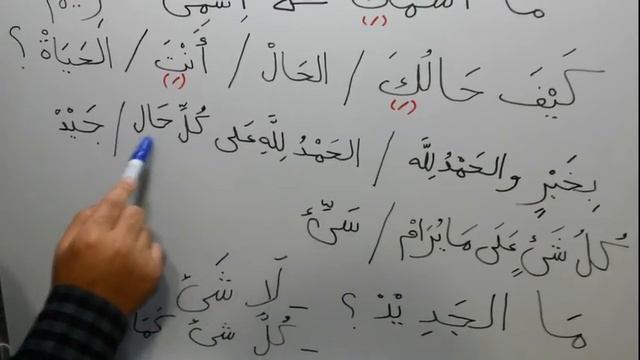 مَا اسْمُكَ
كَيْفَ حَالُكَ / الحَالْ / أَنْتَ / الحَيَاةْ ؟
بِخَيْرٍ والحَمْدُ لِلَّه / الحَمْدُ لِلَّهِ عَلى كُلِّ حَال / جَيِّدْ
كُلُ شَئٍ عَلَى مَا يُرَامْ / سَيِّئْ
مَا الجَدِيْدْ ؟ - لَا شَئَ
- كُلُّ شئ كَمَا